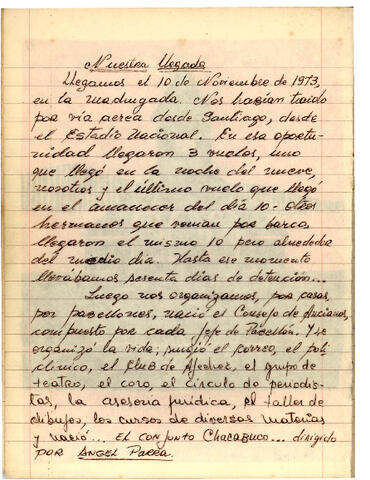 Nuestra llegada
Llegamos el 10 de Noviembre de 1973,
en la madrugada. Nos habían traido
por vía aerea desde Santiago, desde
el Estadio Nacional. En esa oportu-
nidad llegaron 3 vuelos, uno
que llegó en la noche del nueve,
nosotros y el último vuelo que llegó
en el amanecer del día 10 - otros
hermanos que venian por barco
llegaron el mismo 10 pero alrededor
del medio día. Hasta ese momento
llevábamos sesenta días de detención...
Luego nos organizamos, por casas,
por pabellones, nació el Consejo de Ancianos,
compuesto por cada jefe de Pabellón. Y se
organizó la vida; surgió el correo, el poli
clínico, el Club de Ajedrez, el grupo de
teatro, el coro, el círculo de periodis-
tas, la asesoría jurídica, el taller de
dibujos, los cursos de diversas materias
y nació... EL CONJUNTO CHACABUCO... dirigido
por ANGEL PARRA.